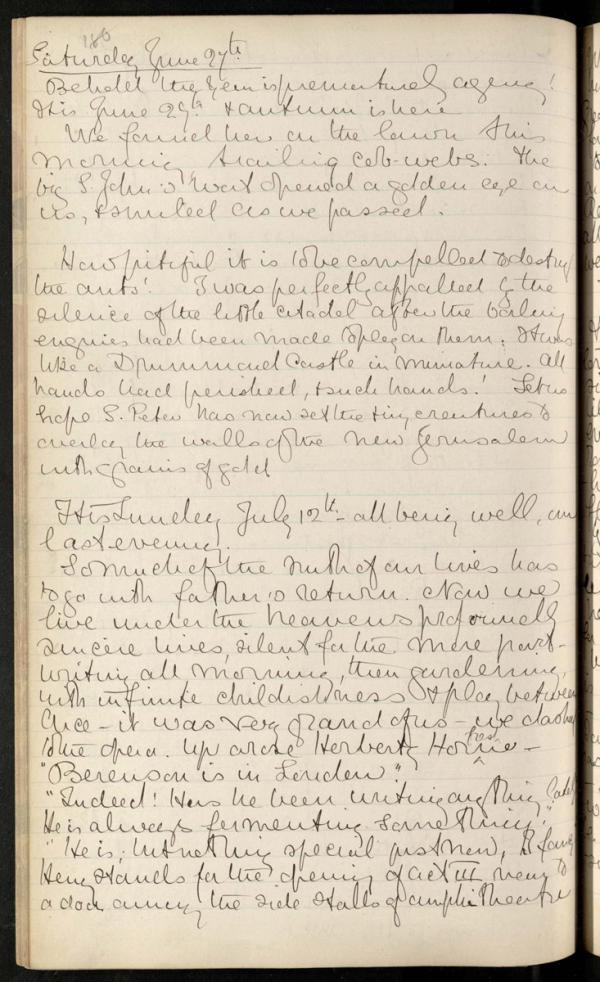 180
Saturday June 27th
Behold the year is prematurely ageing!
It is June 29th & autumn is here
We found her on the lawn this
morning, trailing cob-webs. The
big S. John's Wort opened a golden eye on
us, & smiled as we passed.
How pitiful it is to be compelled to destroy
the ants! I was perfectly appalled by the
silence of the little citadel after the boiling
engines had been made to play on them. It was
like a Drummond Castle in miniature. All
hands had perished, & such hands! Let us
hope S. Peter has now set the tiny creatures to
overlay the walls of the new Jerusalem
with grains of gold
It is Sunday July 12th - all being well, our
last evening.
So much of the truth of our lives has
to go with father's return. Now we
live under the heavens profoundly
sincere lives, silent for the more part -
writing all morning, then gardening,
with infinite childishness & play between
Once - it was very grand of us - we dashed
to the opera. Up arose Herbert P. Horne -
"Berenson is in London".
"Indeed! Has he been writing anything lately
He is always fermenting something".
"He is; but nothing special just now, I fancy"
He stands for the opening of act III near to
a door among the side stalls of amphitheatre